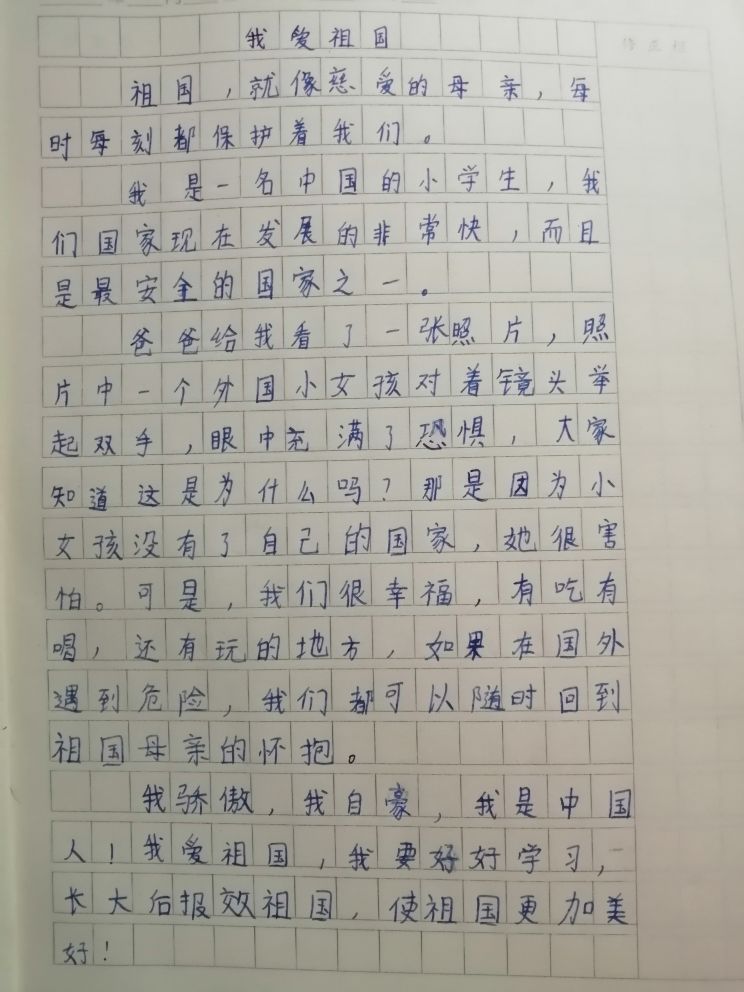 我爱祖国
祖国，就像慈爱的母亲，每
时每刻都保护着我们。
我是一名中国的小学生，我
们国家现在发展的非常快，而且
是最安全的国家之一。
爸爸给我看了一张照片，照
片中一个外国小女孩对着镜头举
起双手，眼中充满了恐惧，大家
知道这是为什么吗？那是因为小
女孩没有了自己的国家，她很害
怕。可是，我们很幸福，有吃有
唱，还有玩的地方，如果在国外
遇到危险，我们都可以随时回到
祖国母亲的怀抱。
我骄傲，我自豪，我是中国
人！我爱祖国，我要好好学习，
长大后报效祖国，使祖国更加美
好！